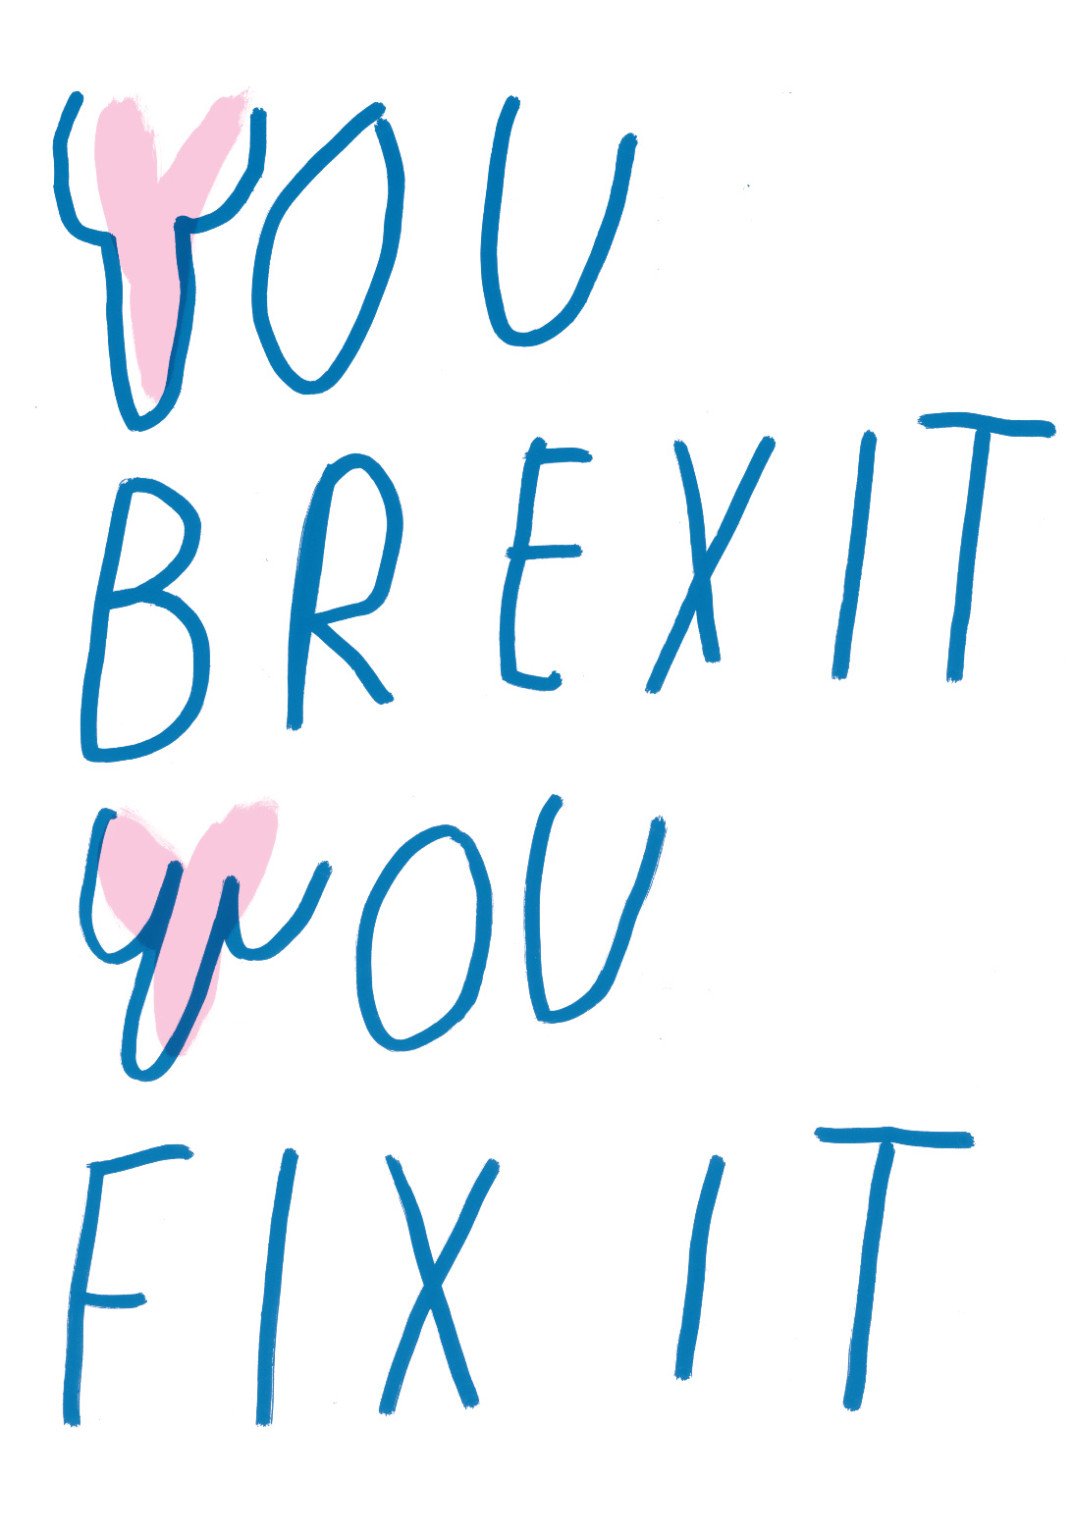 YOU
BREXIT
YOU
FIX IT